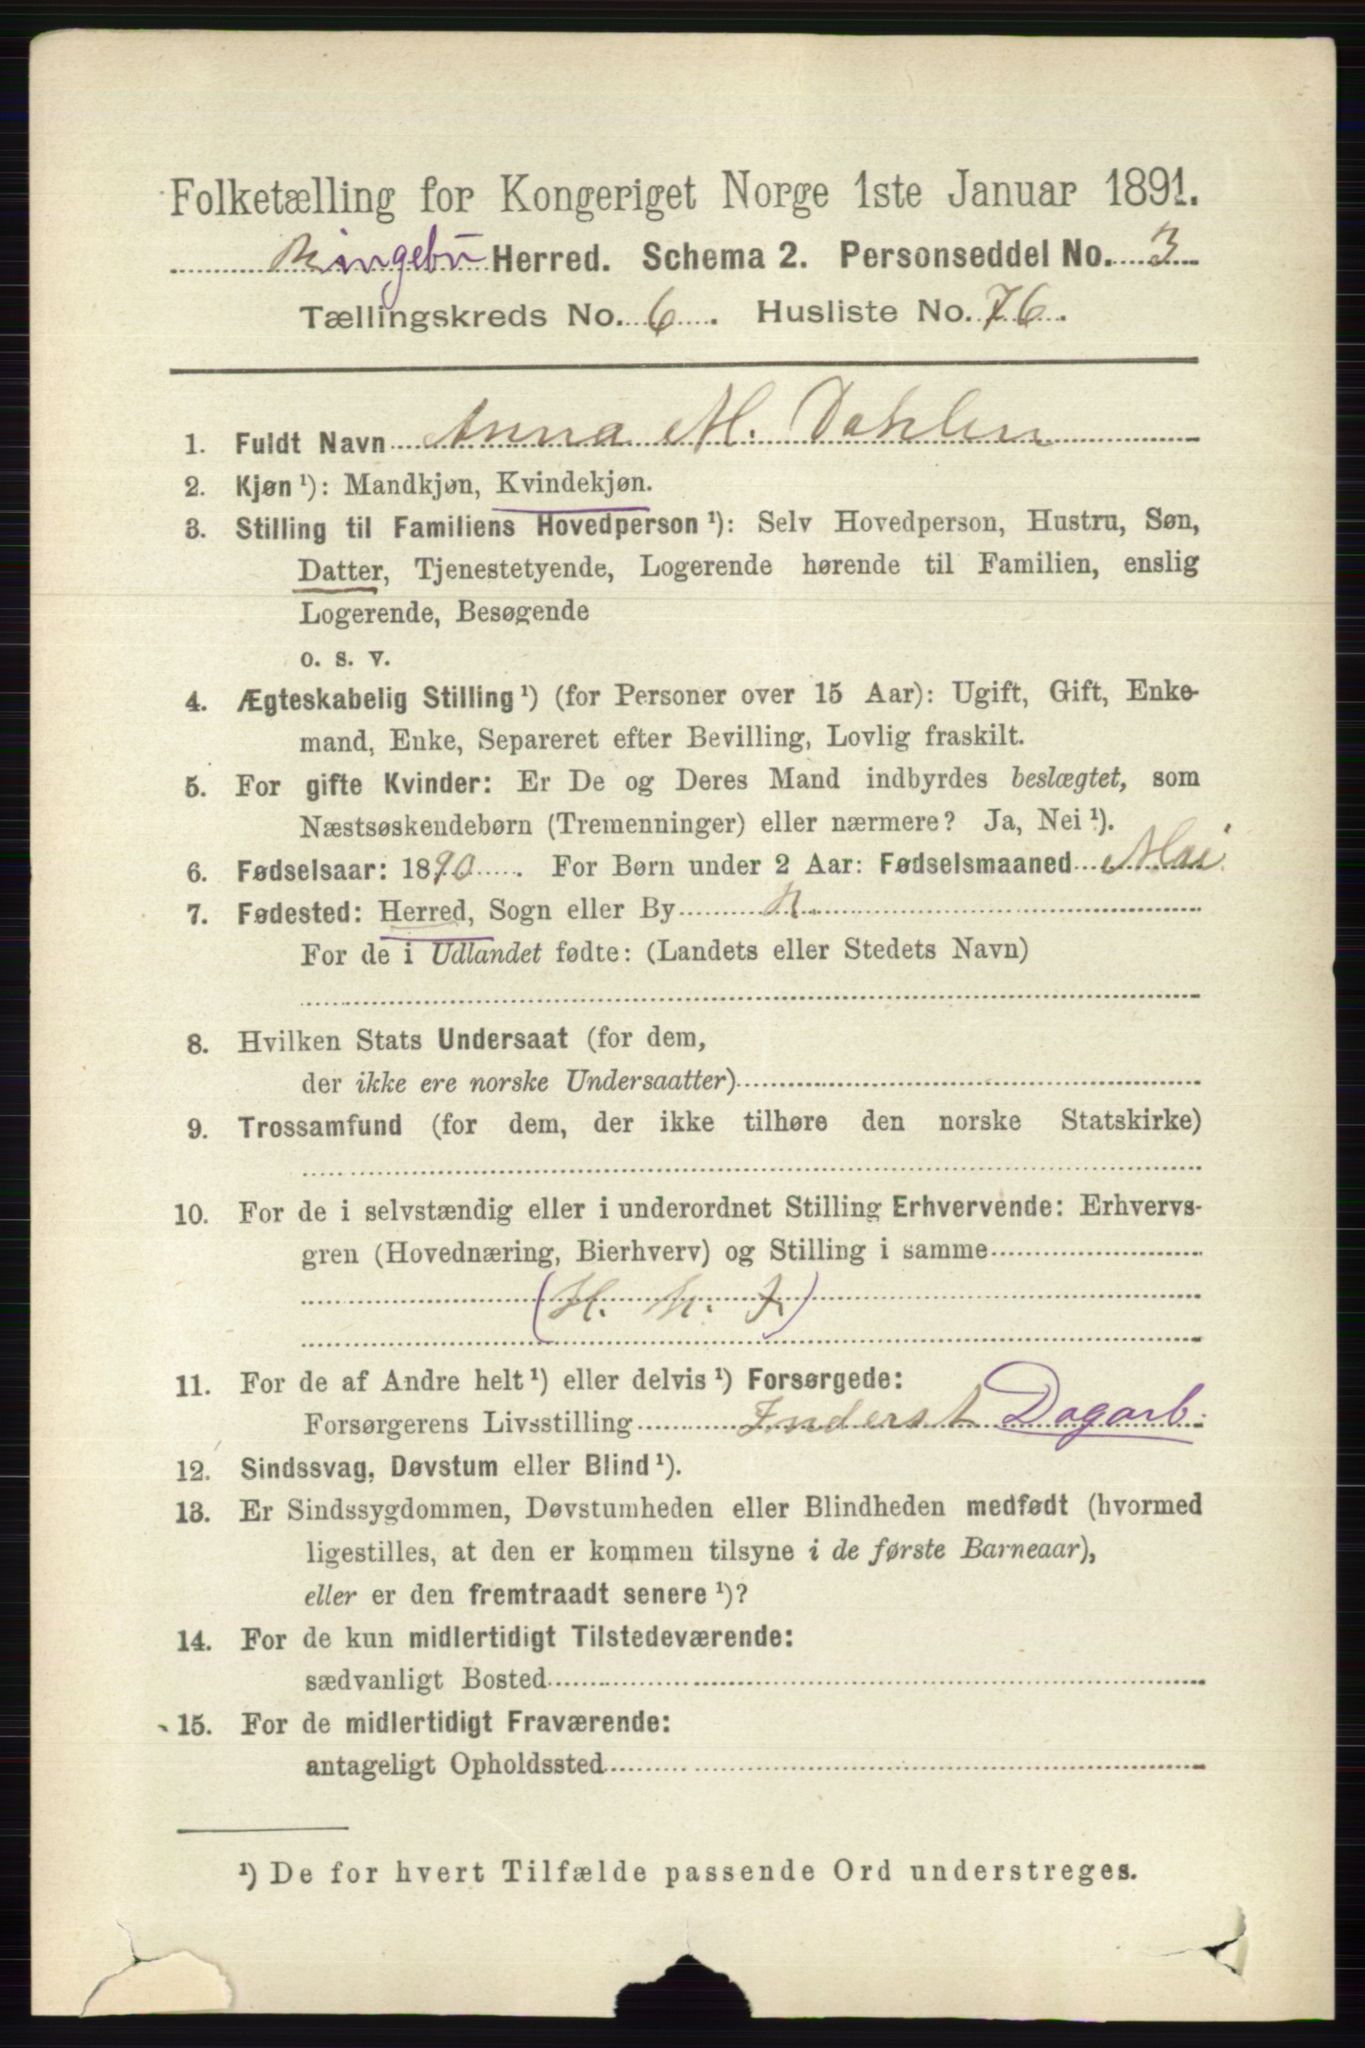 Folketælling for Kongeriget Norge 1ste Januar 1891.
Ringebu Herred. Schema 2. Personseddel No. 3
Tællingskreds No. 6. Husliste No. 76.
1. Fuldt Navn Anna M. Dahlen
2. Kjøn ¹): Mandkjøn, Kvindekjøn.
3. Stilling til Familiens Hovedperson ¹): Selv Hovedperson, Hustru, Søn,
Datter, Tjenestetyende, Logerende hørende til Familien, enslig
Logerende, Besøgende
o. s. v.
4. Ægteskabelig Stilling ¹) (for Personer over 15 Aar): Ugift, Gift, Enke-
mand, Enke, Separeret efter Bevilling, Lovlig fraskilt.
5. For gifte Kvinder: Er De og Deres Mand indbyrdes beslægtet, som
Næstsøskendebørn (Tremenninger) eller nærmere? Ja, Nei ¹).
6. Fødselsaar: 1890. For Børn under 2 Aar: Fødselsmaaned Mai
7. Fødested: Herred, Sogn eller By
For de i Udlandet fødte: (Landets eller Stedets Navn)
8. Hvilken Stats Undersaat (for dem,
der ikke ere norske Undersaatter)
9. Trossamfund (for dem, der ikke tilhøre den norske Statskirke)
10. For de i selvstændig eller i underordnet Stilling Erhvervende: Erhvervs-
gren (Hovednæring, Bierhverv) og Stilling i samme
11. For de af Andre helt ¹) eller delvis ¹) Forsørgede:
Forsørgerens Livsstilling Inderst Dagarb.
12. Sindssvag, Døvstum eller Blind ¹).
13. Er Sindssygdommen, Døvstumheden eller Blindheden medfødt (hvormed
ligestilles, at den er kommen tilsyne i de første Barneaar),
eller er den fremtraadt senere ¹)?
14. For de kun midlertidigt Tilstedeværende:
sædvanligt Bosted
15. For de midlertidigt Fraværende:
antageligt Opholdssted
¹) De for hvert Tilfælde passende Ord understreges.